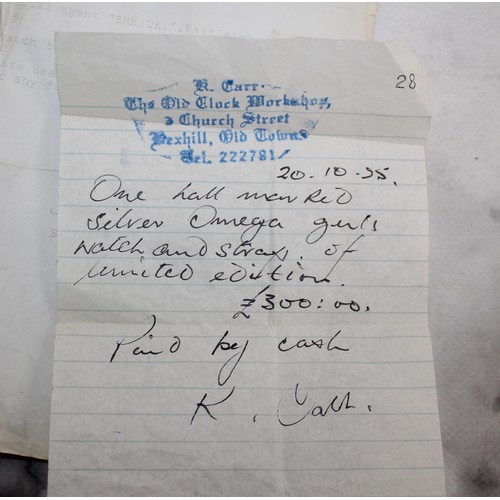 28
K. Carr.
The Old Clock Workshop,
2 Church Street
Bexhill, Old Town
Tel. 222781
20.10.95.
One hall marked
silver Omega gents
watch and strap. of
limited edition.
£300:00.
Paid by cash
K. Carr.